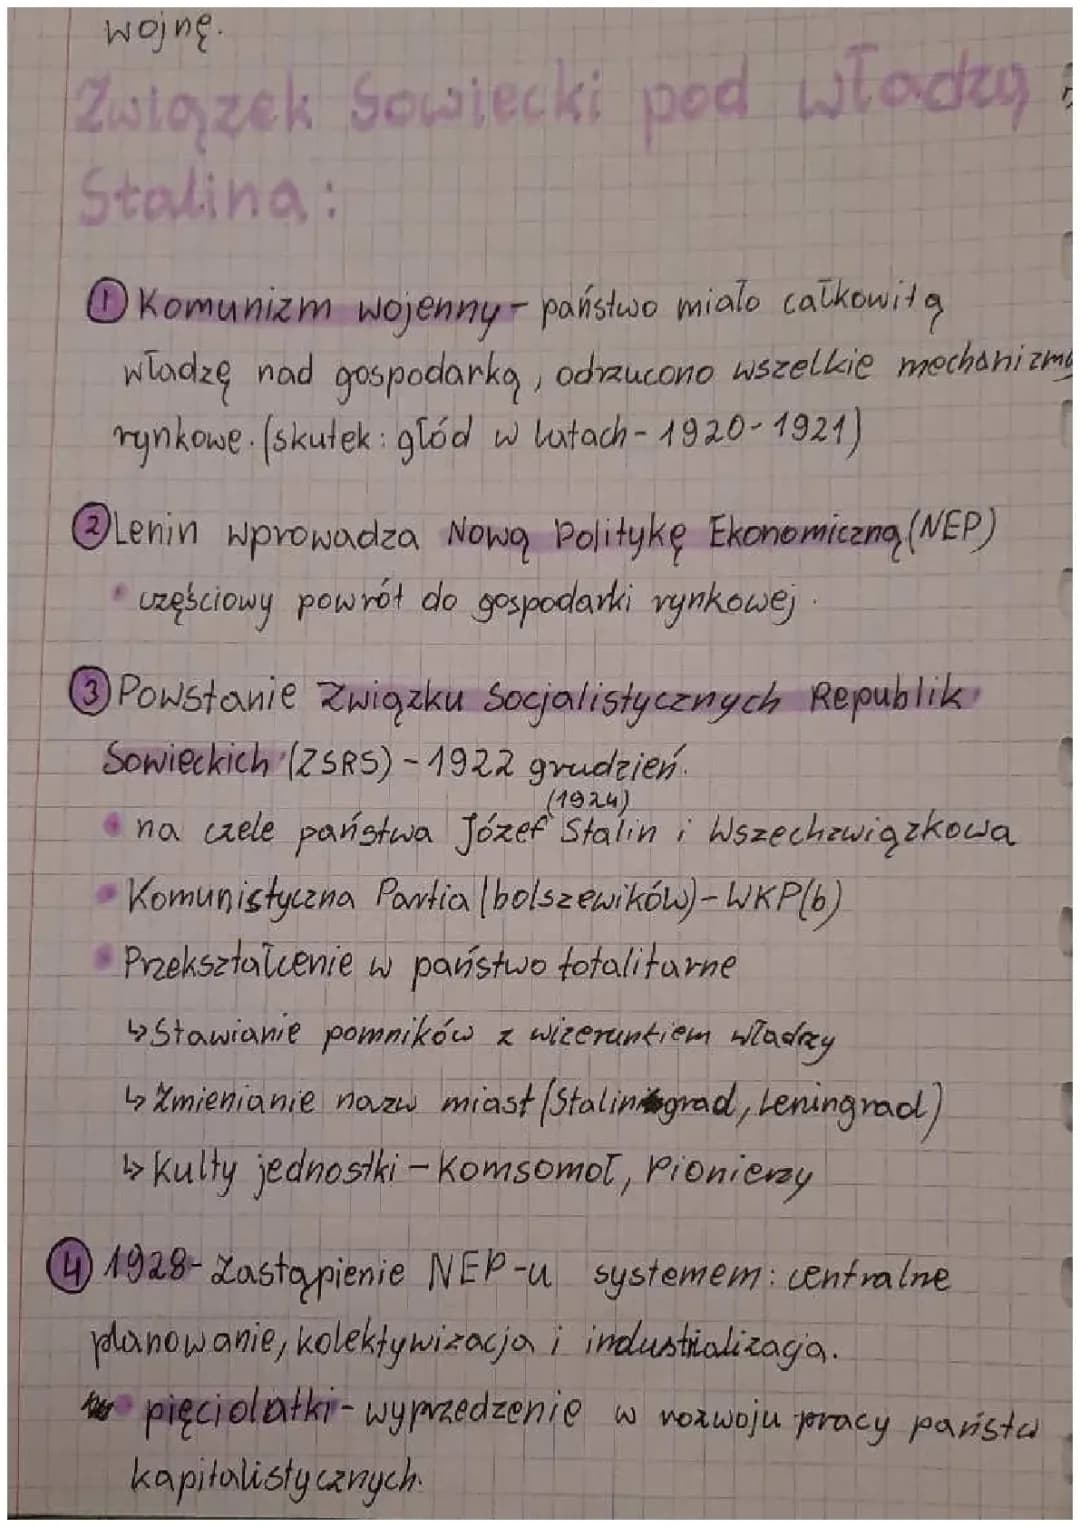 wojnę.
Związek Sowiecki pod władzą
Stalina:
① Komunizm wojenny - państwo miało całkowitą
władzę nad gospodarką, odrzucono wszelkie mechanizmy
rynkowe. (skutek: głód w latach - 1920-1921)
② Lenin wprowadza Nową Politykę Ekonomiczną (NEP)
• częściowy powrót do gospodarki rynkowej.
③ Powstanie Związku Socjalistycznych Republik
Sowieckich (ZSRS) - 1922 grudzień.
(1924)
• na czele państwa Józef Stalin i Wszechzwiązkowa
• Komunistyczna Partia (bolszewików) - WKP(b)
• Przekształcenie w państwo totalitarne
↳ Stawianie pomników z wizerunkiem władzy
↳ Zmienianie nazw miast (Stalingrad, Leningrad)
↳ Kulty jednostki - Komsomoł, Pionierzy
④ 1928 - Zastąpienie NEP-u systemem: centralne
planowanie, kolektywizacja i industrializacja.
• pięciolatki - wyprzedzenie w rozwoju pracy państw
kapitalistycznych.